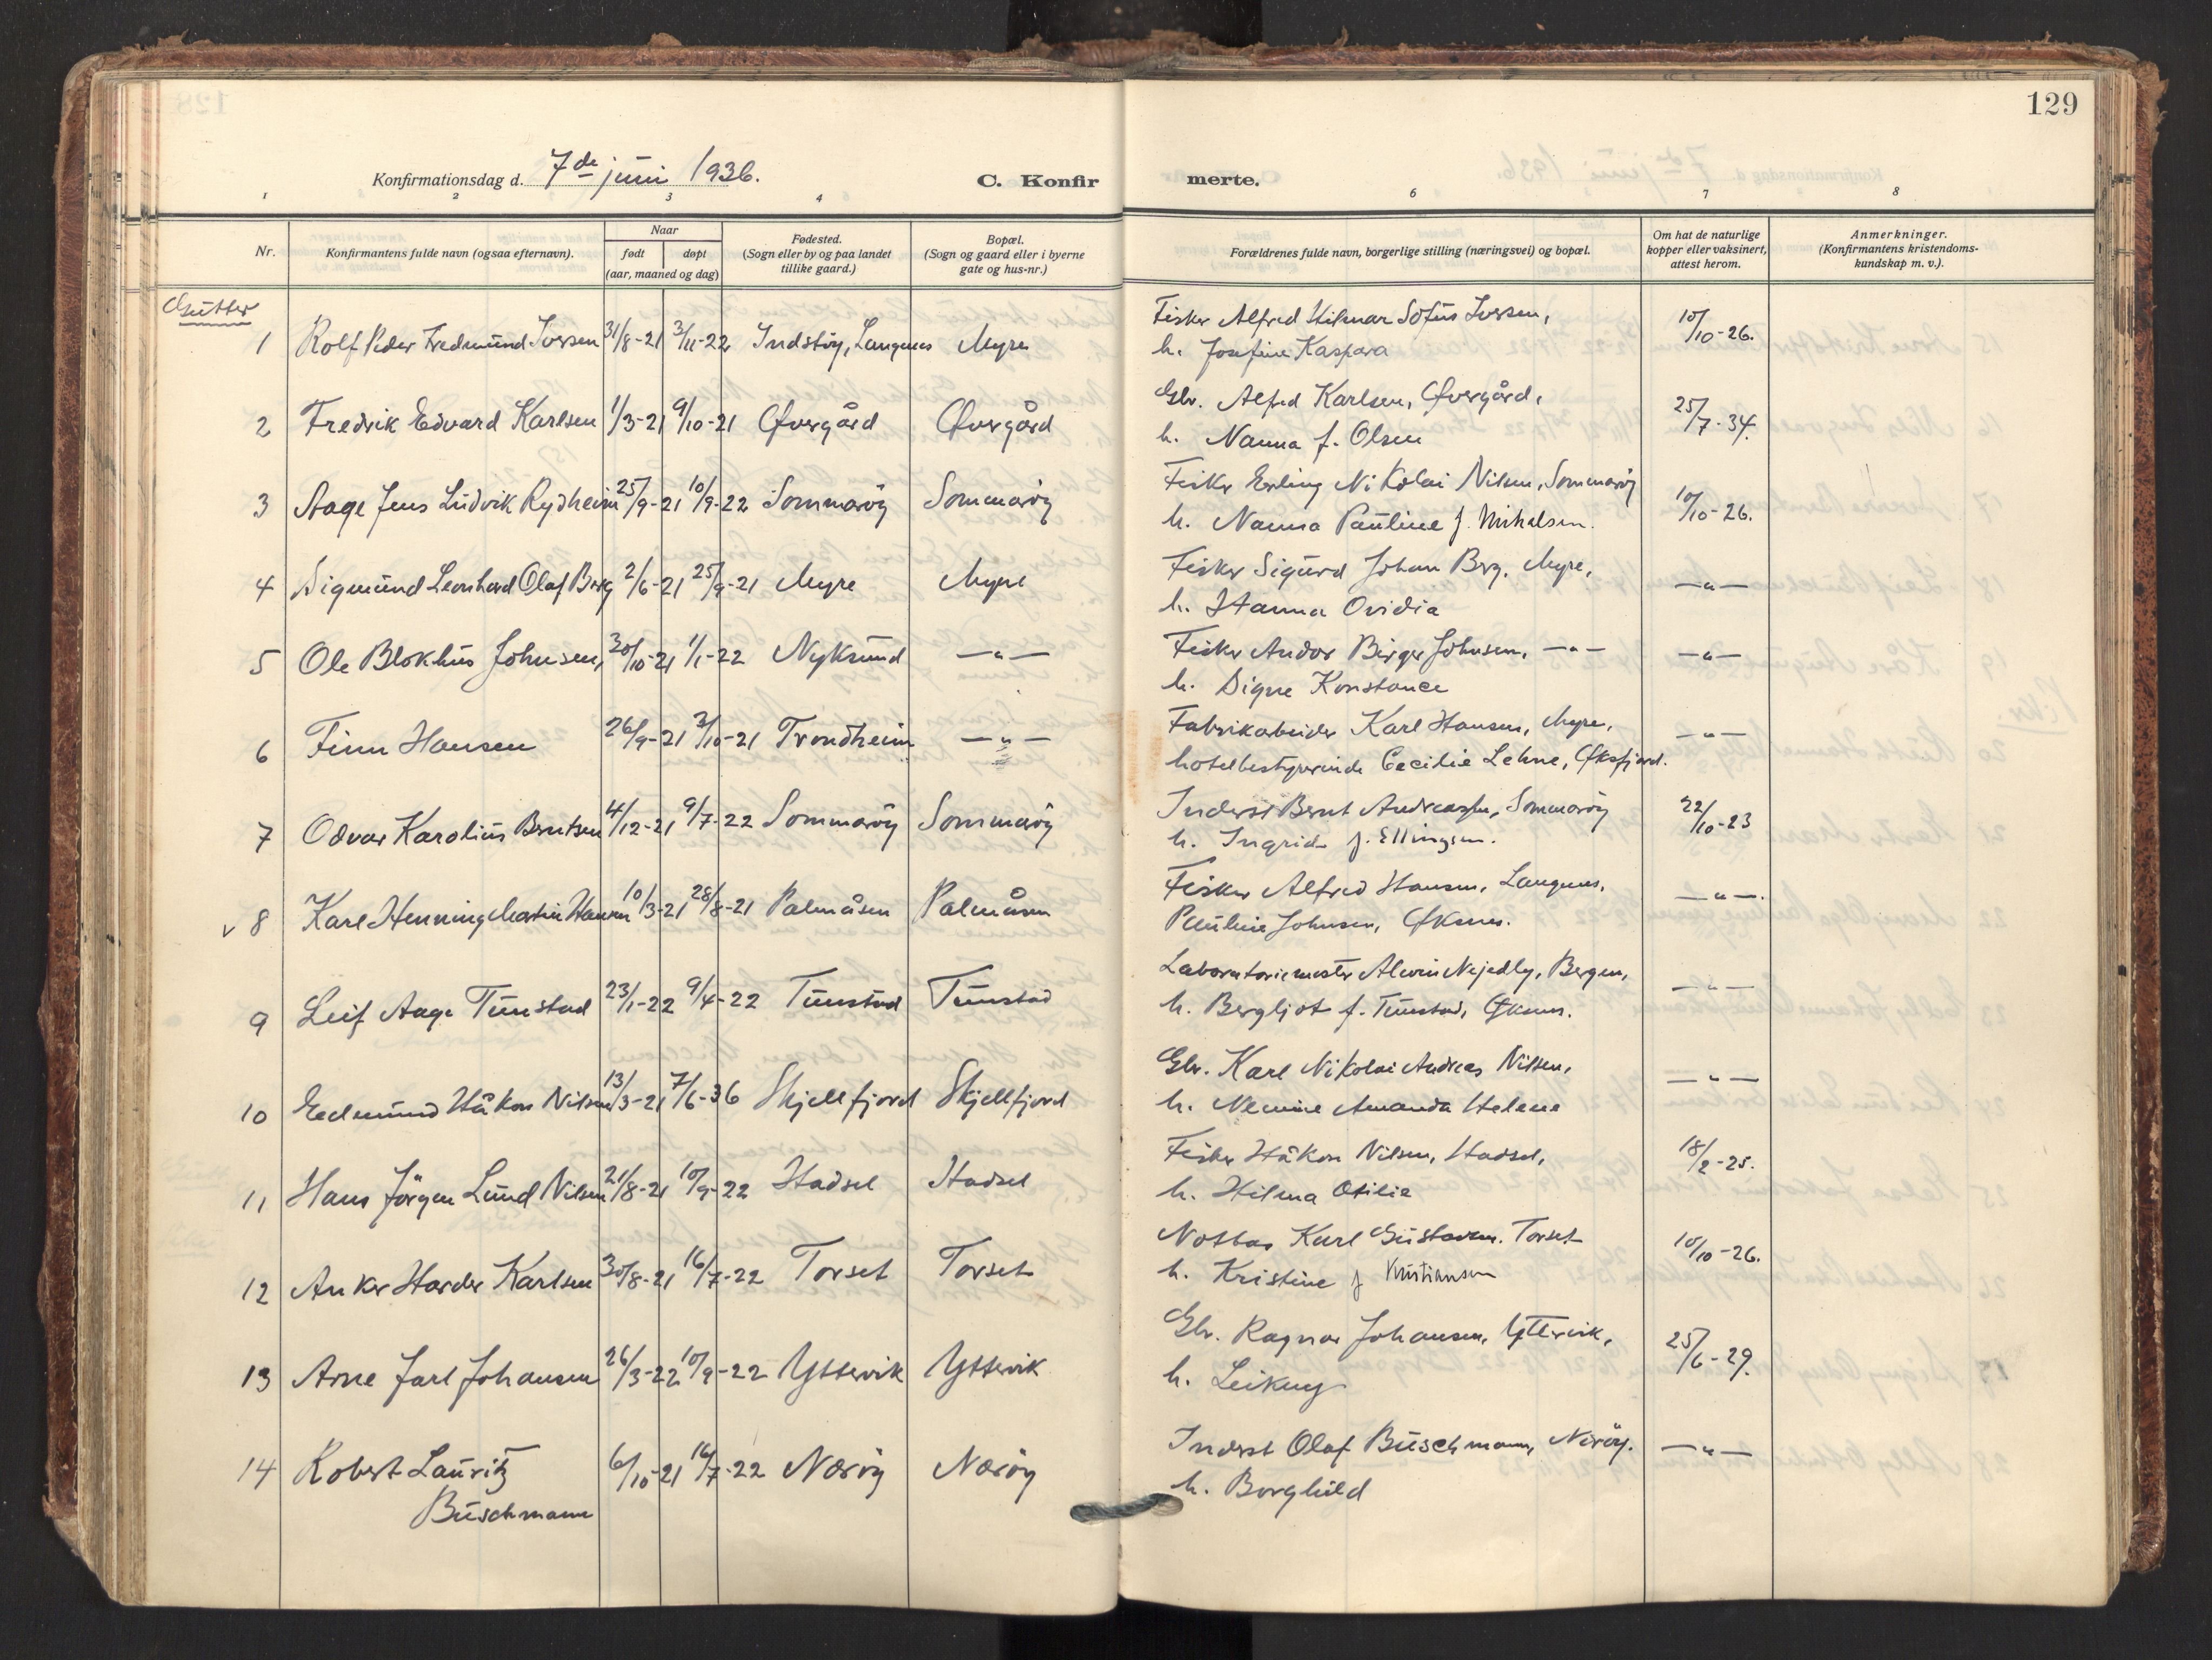 129
Konfirmationsdag d. 7de juni 1936.
C. Konfirmerte.
1 2 3 4 6 7 8
Nr.
Konfirmantens fulde navn (ogsaa efternavn).
Naar
født døpt
(aar, maaned og dag)
Fødested.
(Sogn eller by og paa landet
tillike gaard.)
Bopæl.
(Sogn og gaard eller i byerne
gate og hus-nr.)
Forældrenes fulde navn, borgerlige stilling (næringsvei) og bopæl.
Om hat de naturlige
kopper eller vaksinert,
attest herom.
Anmerkninger.
(Konfirmantens kristendoms-
kundskap m. v.).
Gutter
1 Rolf Peder Fredmund Iversen 31/8-21 3/11-22 Indstøy, Langenes Myre
Fisker Alfred Hilmar Sofus Iversen, 10/10-26.
h. Josefine Kaspara
2 Fredrik Edvard Karlsen 1/3-21 9/10-21 Øvergård Øvergård
Gbr. Alfred Karlsen, Øvergård, 25/7-34.
h. Nanna f. Olsen
3 Aage Jens Ludvik Rydheim 25/9-21 10/9-22 Sommarøy Sommarøy
Fisker Erling Nikolai Nilsen, Sommarøy 10/10-26.
h. Nanna Pauline f. Mikalsen.
4 Sigmund Leonhard Olaf Berg 2/6-21 25/9-21 Myre Myre
Fisker Sigurd Johan Berg, Myre, —"—
h. Hanna Ovidia
5 Ole Blokhus Johnsen, 30/10-21 1/1-22 Nyksund —"—
Fisker Andor Birger Johnsen, —"— —"—
h. Signe Konstance
6 Finn Hansen 26/9-21 3/10-21 Trondheim —"—
Fabrikarbeider Karl Hansen, Myre, —"—
hotelbestyrerinde Cecilie Lehne, Øksfjord.
7 Odvar Karolius Berntsen 4/12-21 9/7-22 Sommarøy Sommarøy
Inderst Bernt Andreassen, Sommarøy 22/10-23
h. Ingrid f. Ellingsen.
v 8 Karl Henning Martin Hansen 10/3-21 28/8-21 Palmåsen Palmåsen
Fisker Alfred Hansen, Langenes, —"—.
Pauline Johnsen, Øksnes.
9 Leif Aage Tunstad 23/1-22 9/4-22 Tunstad Tunstad
Laboratoriemester Alwin Nejedly, Bergen, —"—
h. Bergljot f. Tunstad, Øksnes.
10 Edmund Håkon Nilsen 13/3-21 7/6-36 Skjellfjord Skjellfjord
Gbr. Karl Nikolai Andreas Nilsen, —"—
h. Nemine Amanda Helene
11 Hans Jørgen Lund Nilsen 21/8-21 10/9-22 Hadsel Hadsel
Fisker Håkon Nilsen, Hadsel, 18/2-25.
h. Hilma Otilie
12 Anker Harder Karlsen 30/8-21 16/7-22 Torset Torset
Notbas Karl Gustavsen. Torset 10/10-26.
h. Kristine f Kristiansen
13 Arne Jarl Johansen 26/3-22 10/9-22 Yttervik Yttervik
Gbr. Ragnar Johansen, Yttervik, 25/6-29.
h. Leikny
14 Robert Lauritz 6/10-21 16/7-22 Nærøy Nærøy
Buschmann
Inderst Olaf Buschmann, Nærøy. —"—
h. Borghild